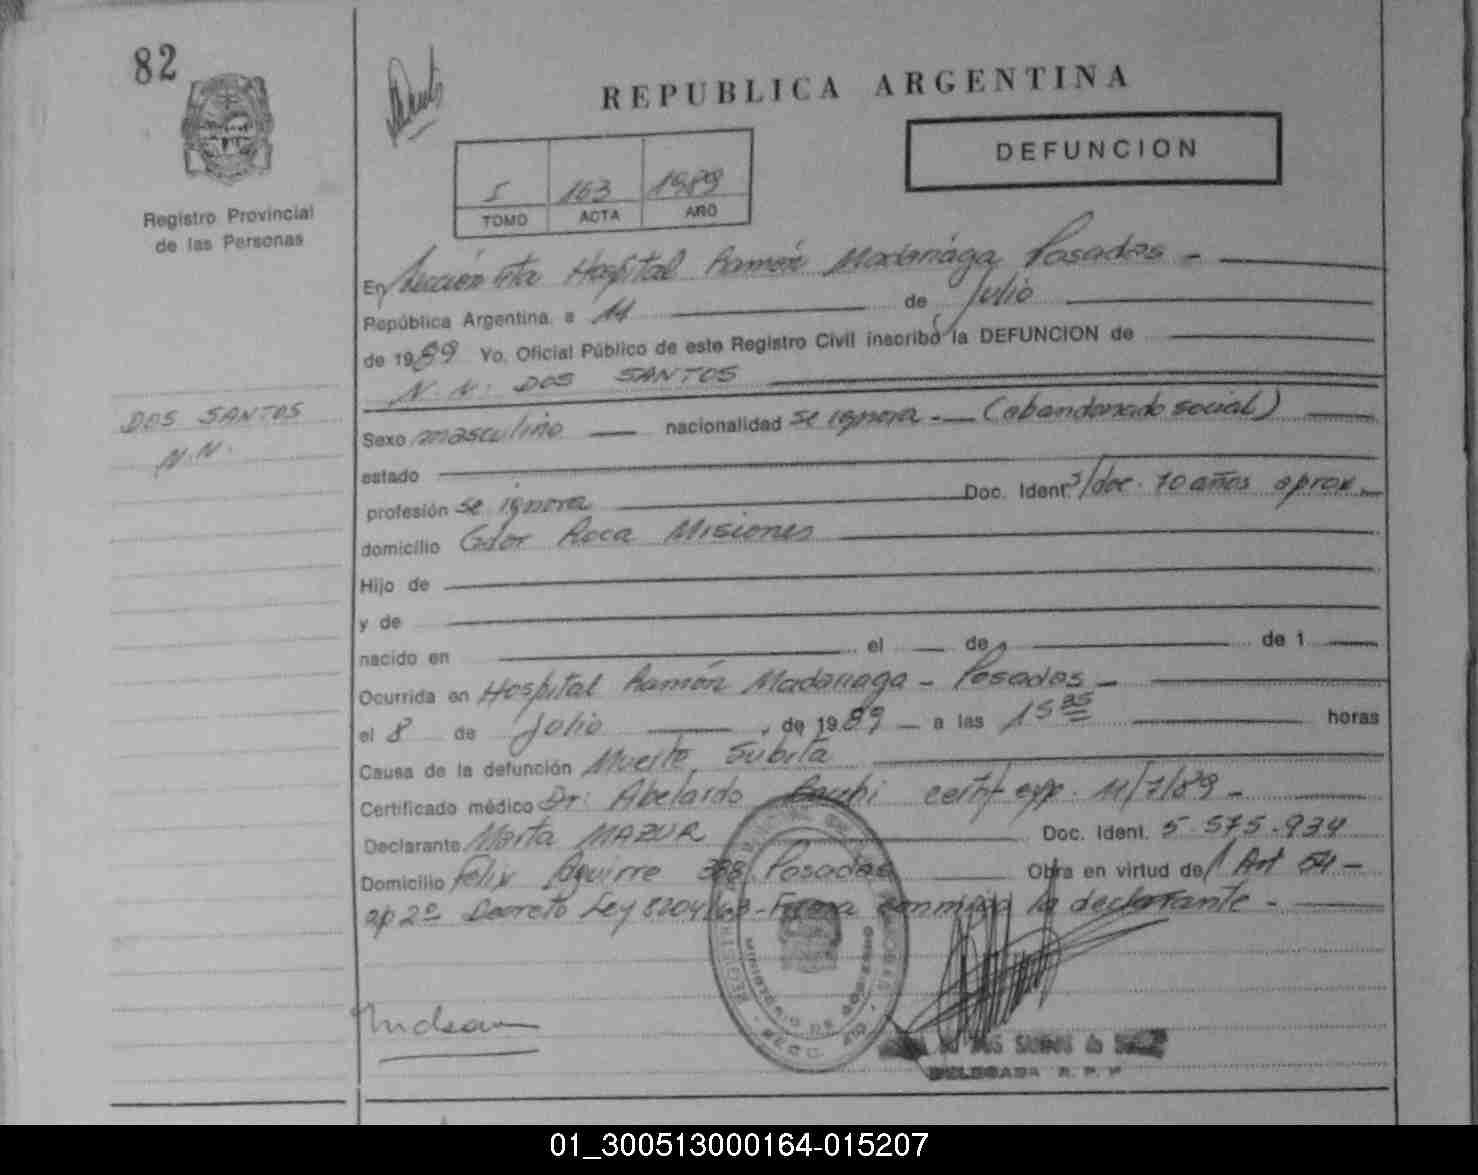 82
REPUBLICA ARGENTINA
DEFUNCION
I 163 1989
TOMO ACTA AÑO
Registro Provincial
de las Personas
En Sección Hospital Ramón Madariaga Posadas -
República Argentina, a 11 de Julio
de 1989 Yo, Oficial Público de este Registro Civil inscribo la DEFUNCION de
N. N. DOS SANTOS
DOS SANTOS
N.N.
Sexo masculino nacionalidad se ignora - (abandonado social)
estado
profesión se ignora Doc. Ident. s/doc. 70 años aprox.
domicilio Gdor Roca Misiones
Hijo de
y de
nacido en el de de 1
Ocurrida en Hospital Ramón Madariaga - Posadas -
el 8 de Julio de 1989 a las 15 35 horas
Causa de la defunción Muerte Subita
Certificado médico Dr: Abelardo certif exp. 11/7/89 -
Declarante Marta MAZUR Doc. Ident. 5.575.934
Domicilio Felix Aguirre Posadas Obra en virtud de Art 54 -
ap 2º Decreto Ley 8204/63 - Firma conmigo la declarante -
MINISTERIO DE GOBIERNO
DELEGADA R. P. P
01_300513000164-015207